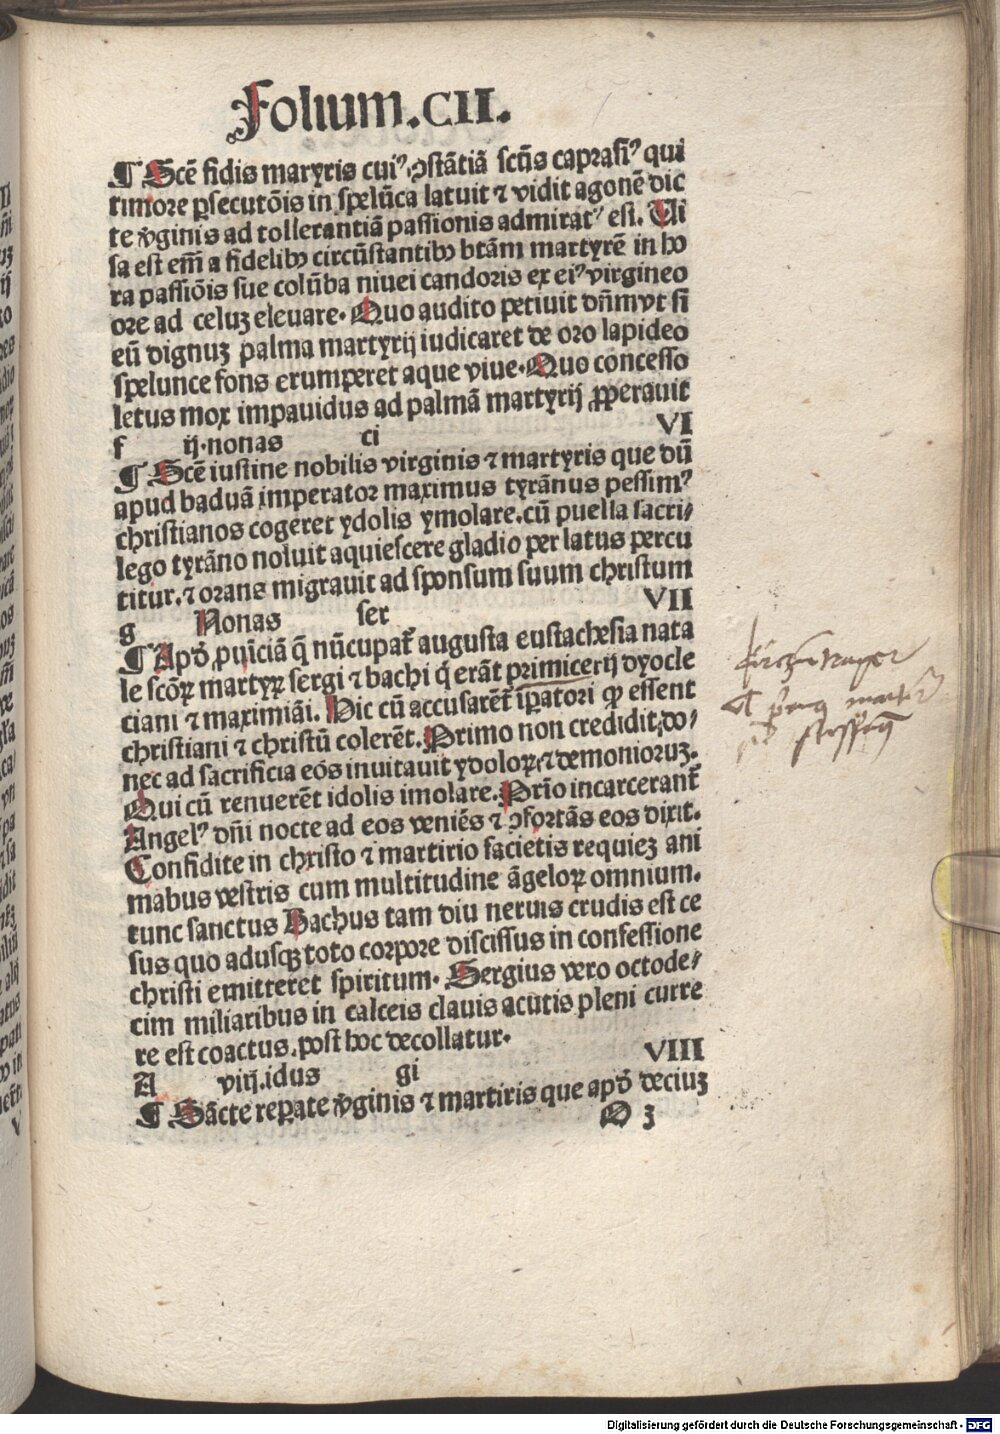 Folium.CII.
¶ Scē fidis martyris cuiꝰ ↄstātiā scūs caprasiꝰ qui
timore ꝑsecutōis in spelūca latuit ⁊ vidit agonē dic
te v̄ginis ad tollerantiā passionis admiratꝰ est. Ui
sa est em̄ a fidelibꝫ circūstantibꝫ btām martyrē in ho
ra passiōis sue colūba niuei candoris ex eiꝰ virgineo
ore ad celuꝫ eleuare. Quo audito petiuit dn̄m vt si
eū dignuꝫ palma martyrij iudicaret de oro lapideo
spelunce fons erumperet aque viue. Quo concesso
letus mox impauidus ad palmā martyrij ꝓperauit
f ij.nonas ci VI
¶ Scē iustine nobilis virginis ⁊ martyris que dū
apud baduā imperator maximus tyrānus pessimꝰ
christianos cogeret ydolis ymolare. cū puella sacri⸗
lego tyrāno noluit aquiescere gladio per latus percu
titur. ⁊ orans migrauit ad sponsum suum christum
g Nonas ser VII
¶ Apđ ꝓuīciā q̄ nūcupat᷑ augusta eustachesia nata
le scōꝝ martyꝝ sergi ⁊ bachi q̇ erāt primicerij dyocle
ciani ⁊ maximiāi. Hic cū accusarēt᷑ iꝑatori ꝙ essent
christiani ⁊ christū colerēt. Primo non credidit, do⸗
nec ad sacrificia eos inuitauit ydoloꝝ ⁊ demonioruꝫ.
Qui cū renuerēt idolis imolare. Prīo incarcerant᷑
Angelꝰ dn̄i nocte ad eos veniēs ⁊ ↄfortās eos dixit.
Confidite in christo ⁊ martirio facietis requieꝫ ani
mabus vestris cum multitudine āgeloꝝ omnium.
tunc sanctus Bachus tam diu neruis crudis est ce
sus quo adusqꝫ toto corpore discissus in confessione
christi emitteret spiritum. Sergius vero octode⸗
cim miliaribus in calceis clauis acutis pleni curre
re est coactus. post hoc decollatur.
A viij.idus gi VIII
¶ Sācte reꝑate v̄ginis ⁊ martiris que apđ deciuꝫ
O 3
Digitalisierung gefördert durch die Deutsche Forschungsgemeinschaft - DFG